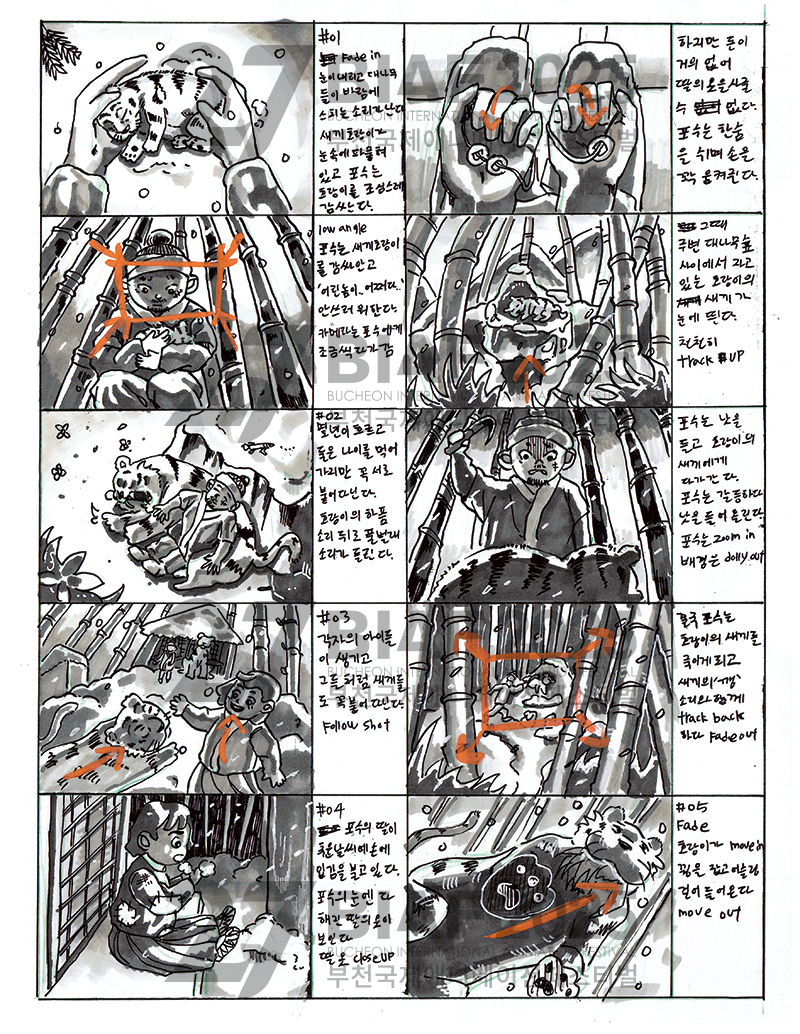 #01
Fade in
눈이 내리고 대나무
들이 바람에
스치는 소리가 난다
새끼호랑이가
눈속에 파묻혀
있고 포수는
호랑이를 조심스레
감싼다.
low angle
포수는 새끼호랑이
를 감싸안고
'어린놈이..어쩌다..'
안쓰러워한다
카메라는 포수에게
조금씩 다가감
#02
몇년이 흐르고
둘은 나이를 먹어
가지만 꼭 서로
붙어다닌다.
호랑이의 하품
소리 뒤로 풀벌레
소리가 들린다.
#03
각자의 아이들
이 생기고
그들처럼 새끼들
도 꼭 붙어다닌다.
Follow shot
#04
포수의 딸이
추운날씨에 손에
입김을 불고있다.
포수의 눈엔 다
해진 딸의 옷이
보인다
딸로 close up
하지만 돈이
거의 없어
딸의 옷을 사줄
수 없다.
포수는 한숨
을 쉬며 손을
꽉 움켜쥔다.
그때
주변 대나무숲
사이에서 자고
있는 호랑이의
새끼가
눈에 띈다.
천천히
track UP
포수는 낫을
들고 호랑이의
새끼에게
다가간다.
포수는 갈등하다
낫을 들어올린다
포수는 zoom in
배경은 dolly out
결국 포수는
호랑이의 새끼를
죽이게 되고
새끼의
소리와 함께
track back
하다 Fade out
#05
Fade
호랑이가 move in
꿩을 잡고 어슬렁
걸어 들어온다
move out
27
BIAF2025
BUCHEON INTERNATIONAL ANIMATION FESTIVAL
부천국제애니메이션페스티벌